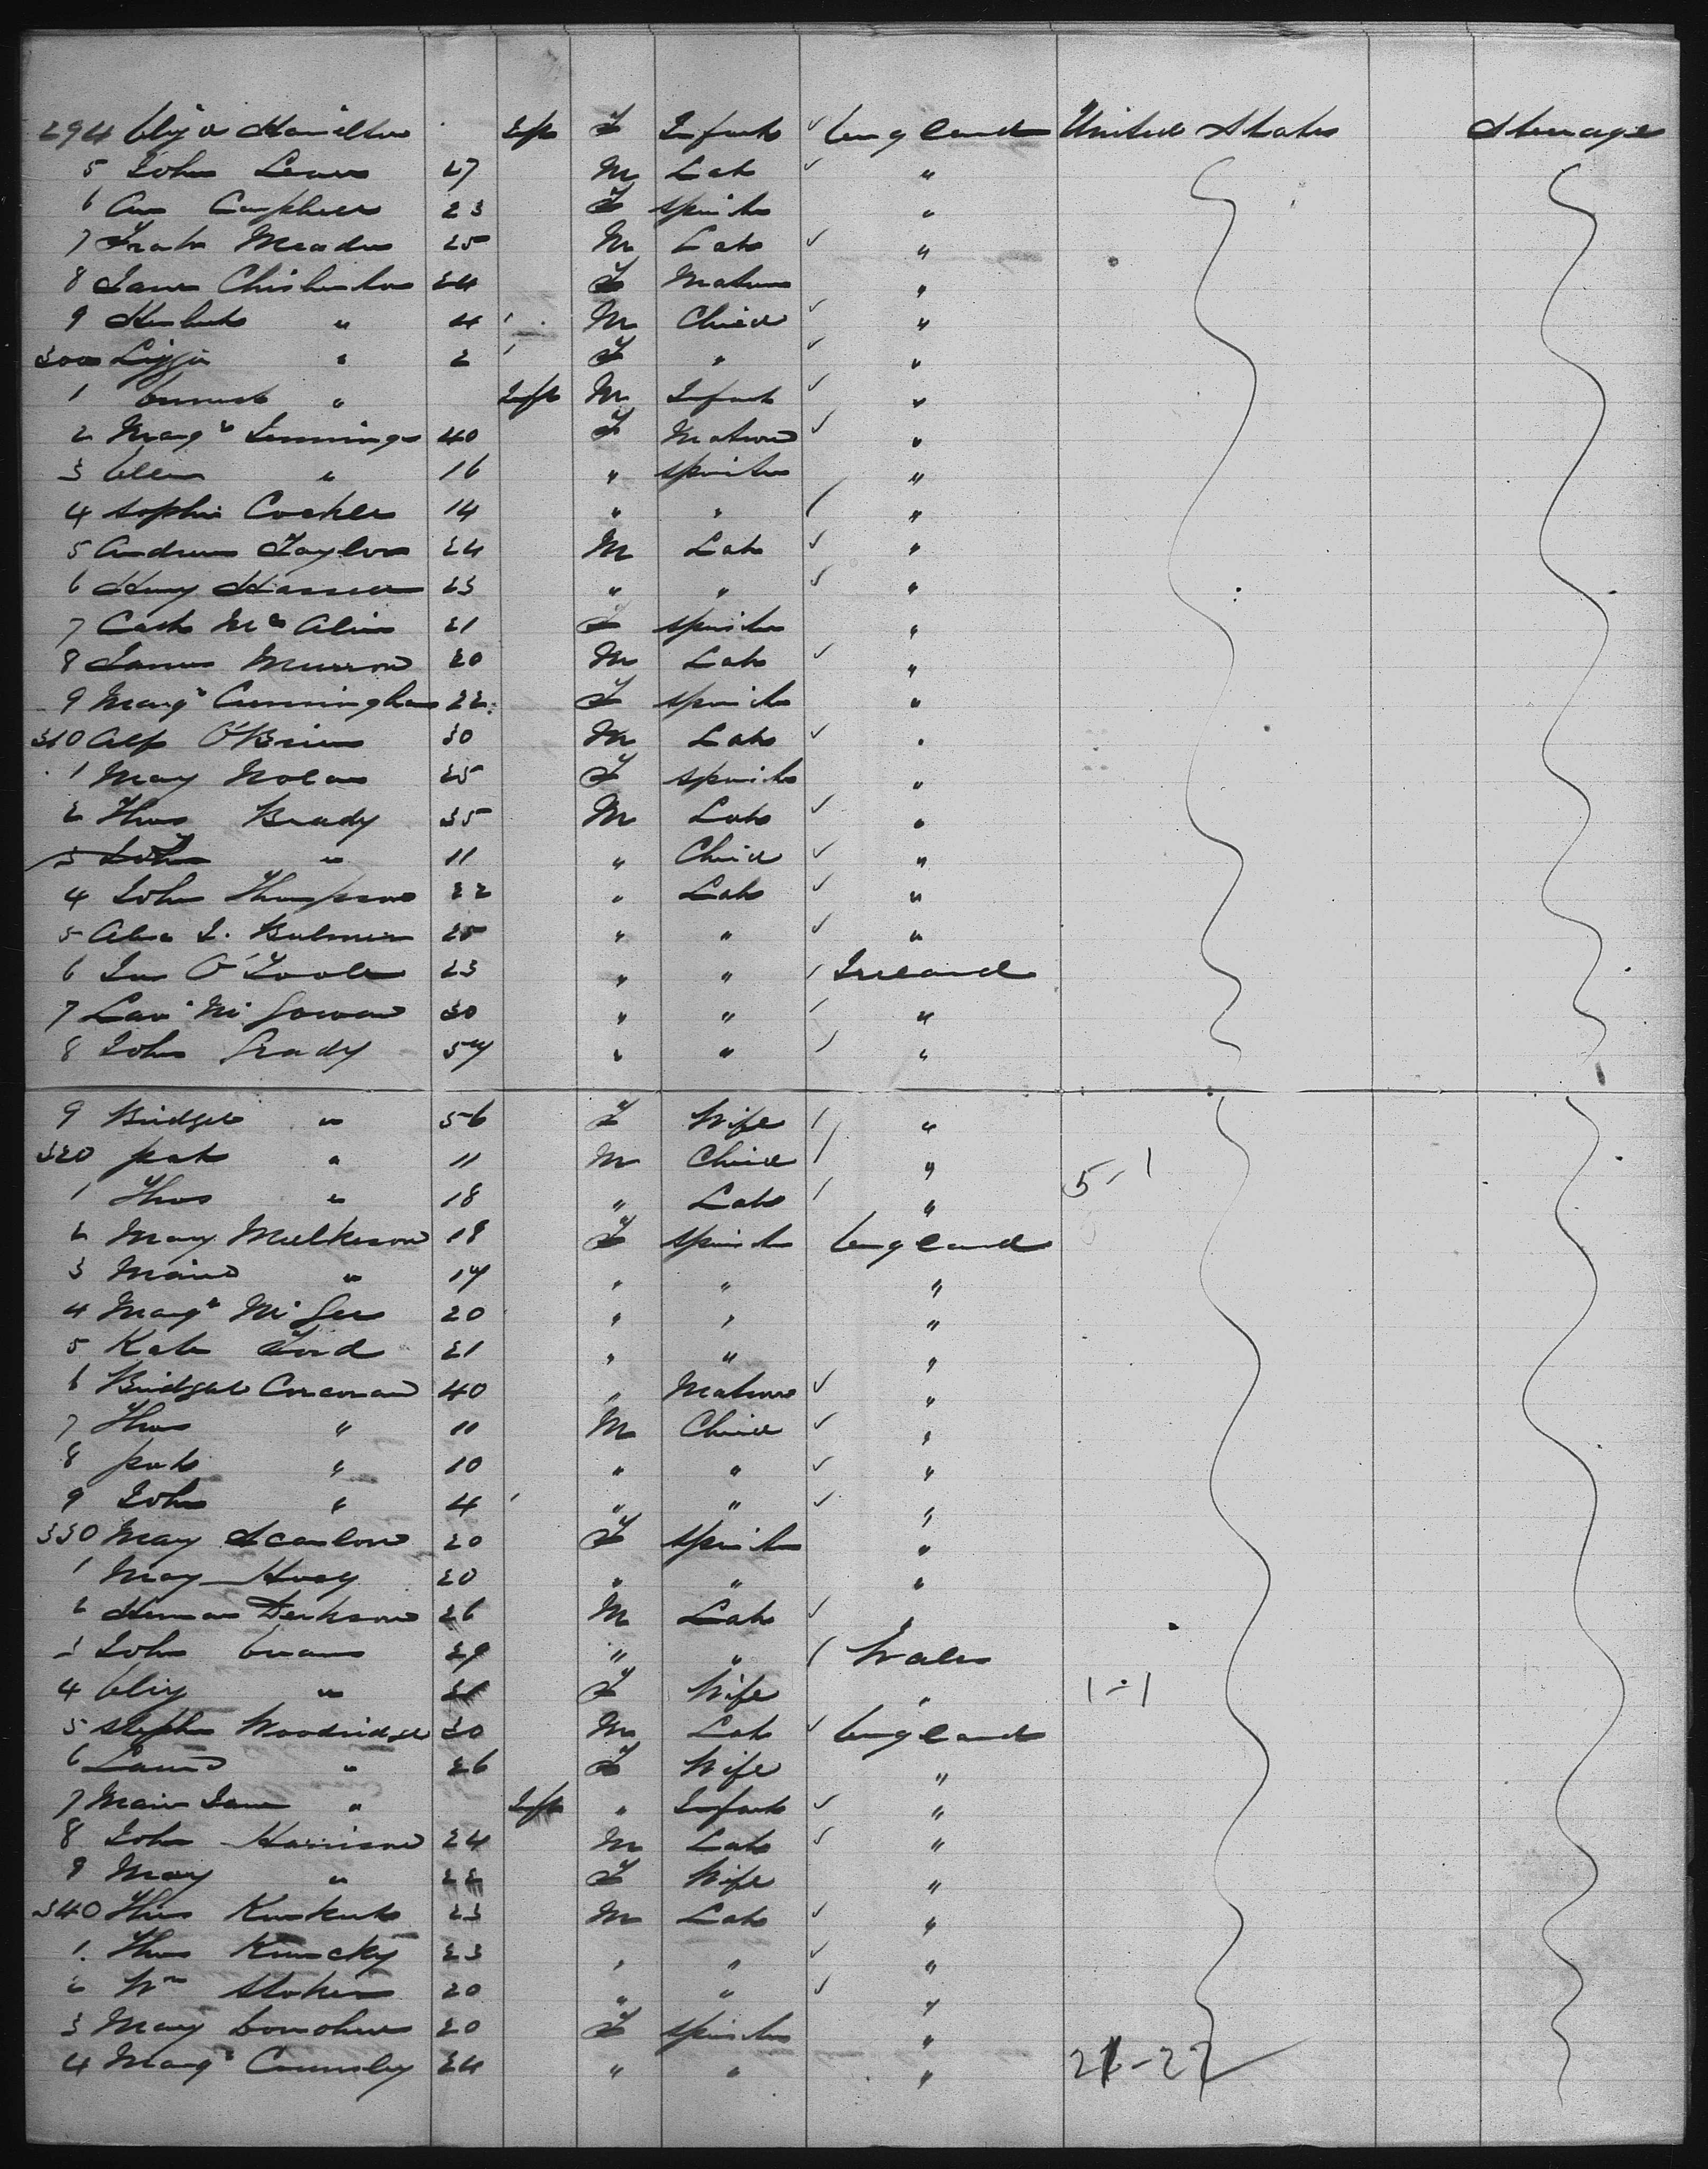 294 Eliza Hamilton Inft F Infant England United States Steerage
5 John Lewis 27 M Lab "
6 Ann Campbell 23 F Spinster "
7 Frank Meader 25 M Lab "
8 Jane 24 F Matron "
9 Herbert " 4 M Child "
300 Lizzie " 2 F " "
1 Ernest " Inft M Infant "
2 Margt Jennings 40 F Matron "
3 Ellen " 16 " Spinster "
4 Sophie 14 " " "
5 Andrew Taylor 24 M Lab "
6 Henry 23 " " "
7 Cath 21 F Spinster "
8 James 20 M Lab "
9 Margt Cunningham 22 F Spinster "
310 Alf O'Brien 30 M Lab "
1 Mary Nolan 25 F Spinster "
2 Thos Brady 35 M Lab "
3 John " 11 " Child "
4 John Thompson 22 " Lab "
5 25 " " "
6 O'Toole 23 " " Ireland
7 30 " " "
8 John Grady 57 " " "
9 Bridget " 56 F Wife "
320 Pat " 11 M Child " 5-1
1 Thos " 18 " Lab "
2 Mary 18 F Spinster England
3 " 17 " " "
4 Margt McGee 20 " " "
5 Kate Ford 21 " " "
6 Bridget Corcoran 40 " Matron "
7 Thos " 11 M Child "
8 Pat " 10 " " "
9 John " 4 " " "
330 Mary Scanlon 20 F Spinster "
1 Mary 20 " " "
2 Herman Derkson 26 M Lab "
3 John Evans 29 " " Wales
4 Eliz " F Wife " 1-1
5 Stephen Woodridge 30 M Lab England
6 " 26 F Wife "
7 Jane " Inft " Infant "
8 John Harrison 24 M Lab "
9 Mary " 22 F Wife "
340 Thos 23 M Lab "
1 Thos 23 " " "
2 Wm Stokes 20 " " "
3 Mary Donohue 20 F Spinster "
4 Margt 24 " " " -27